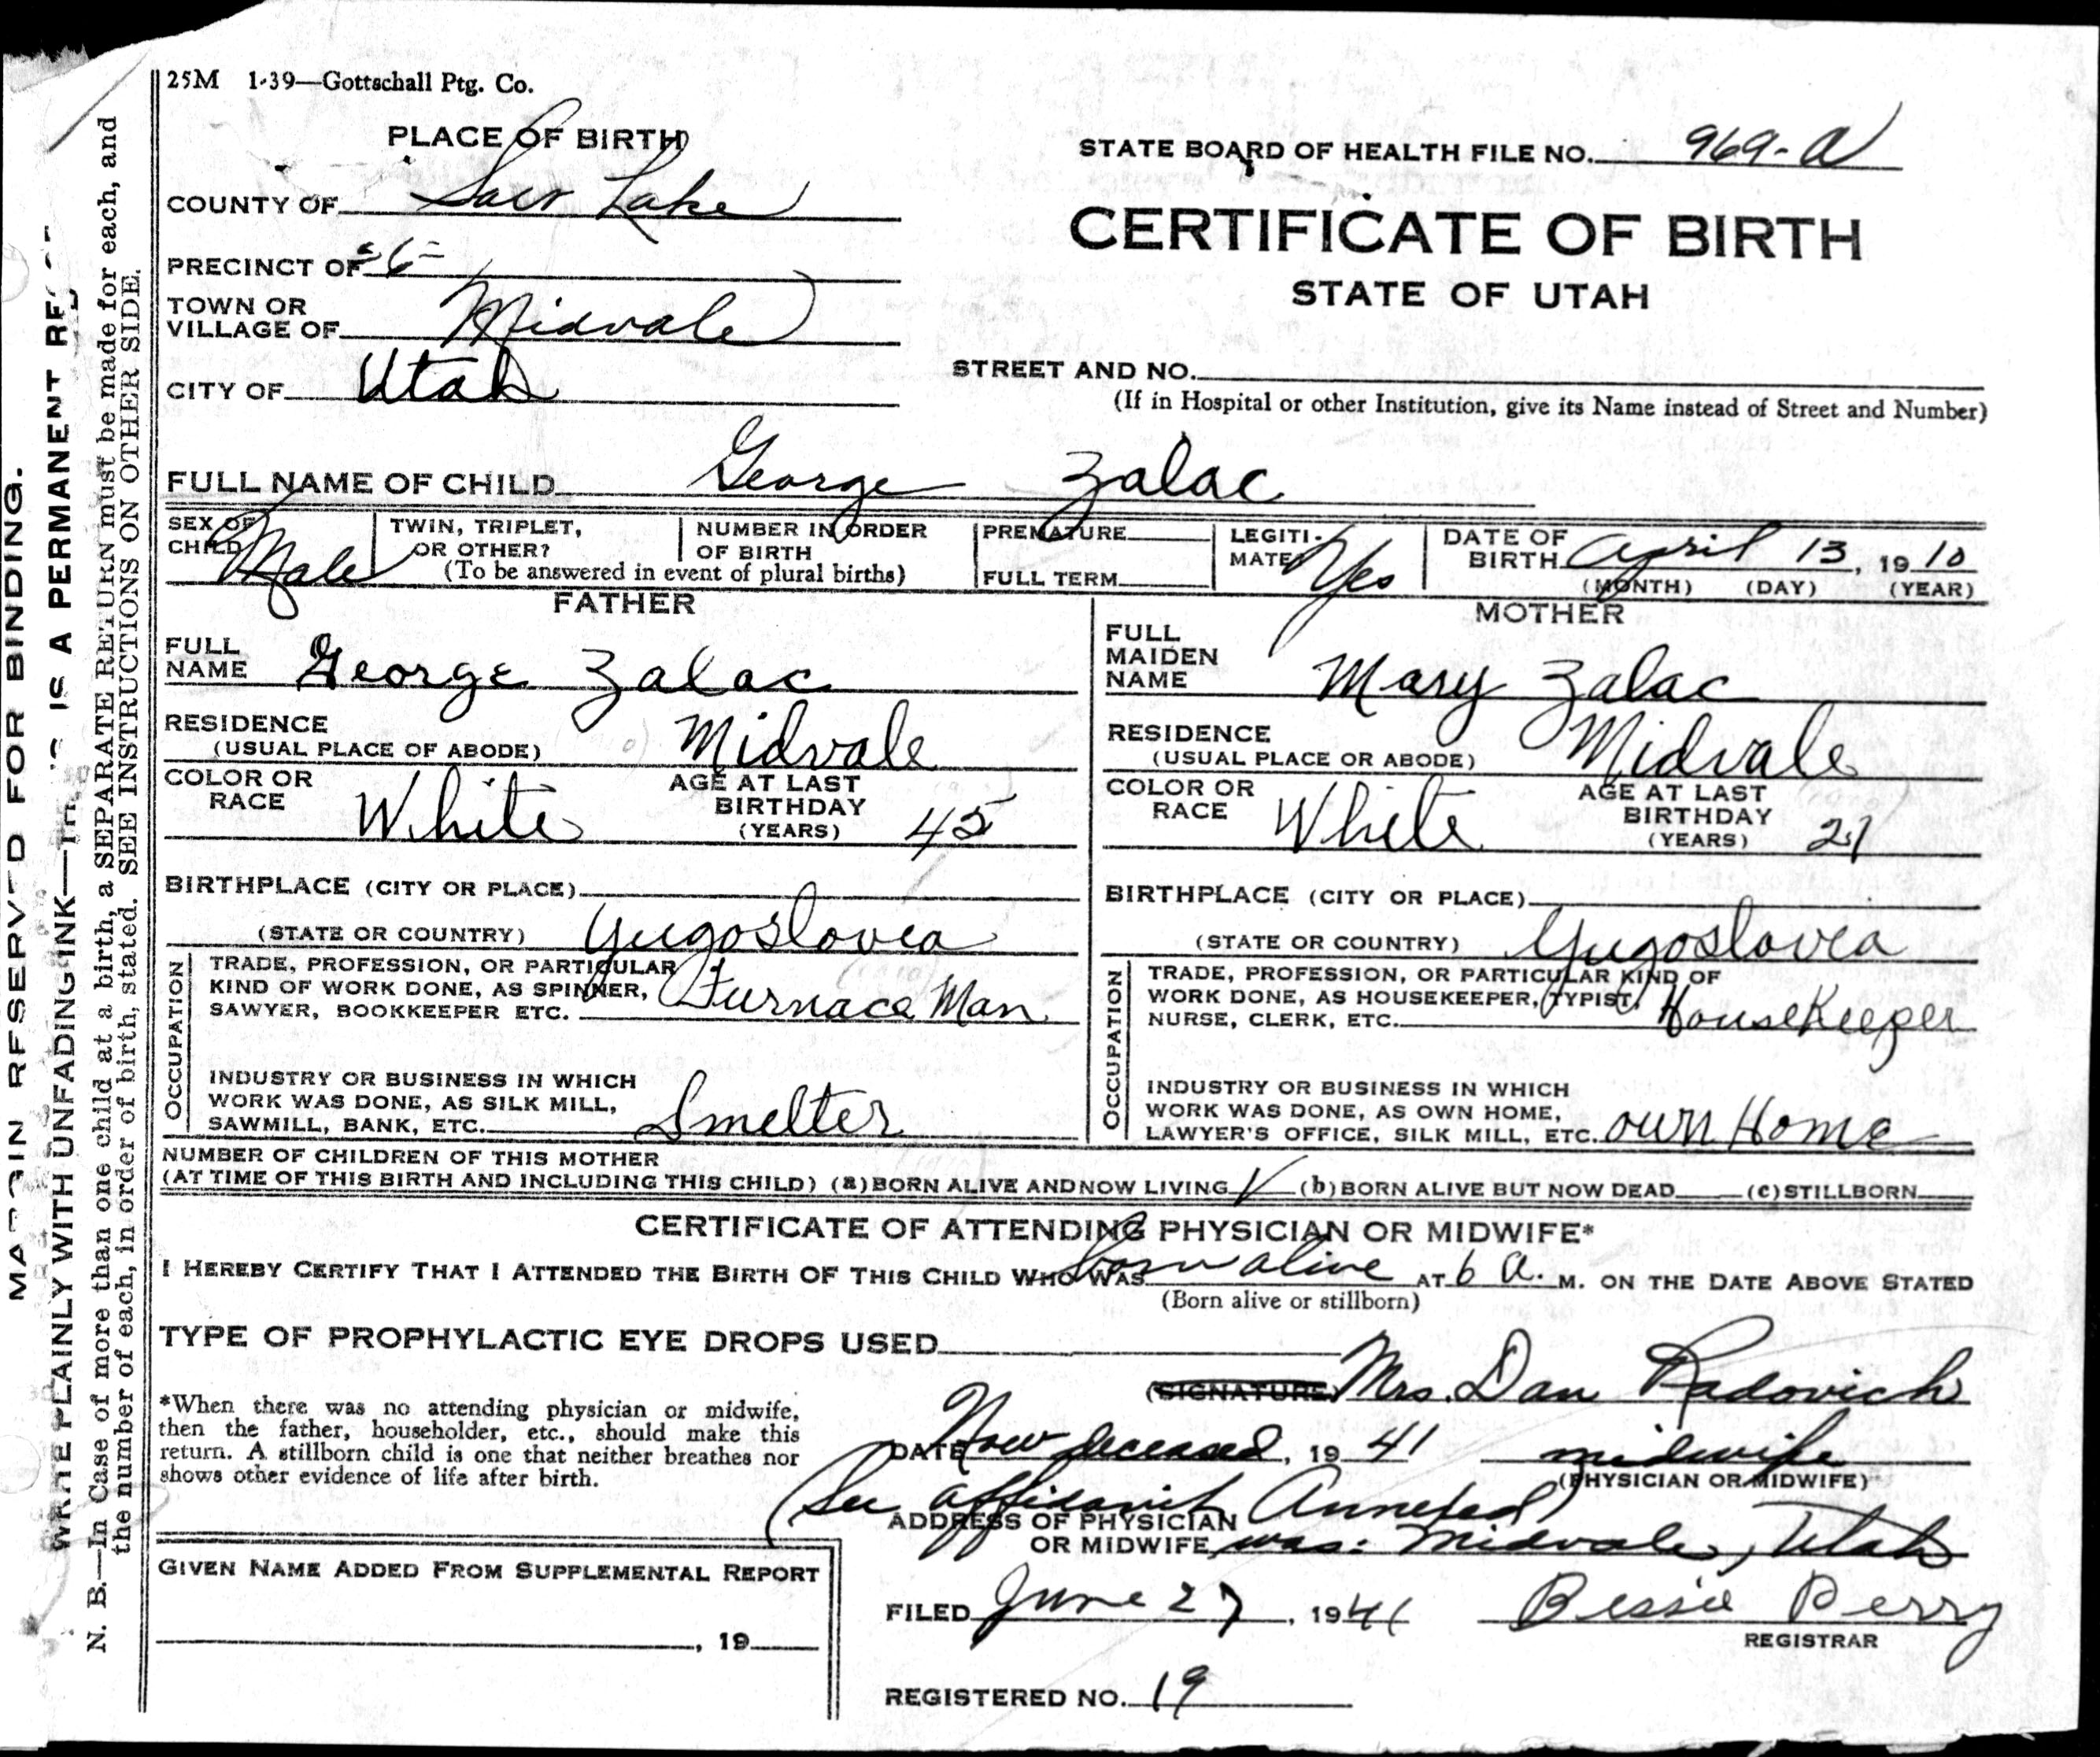 25M 1-39—Gottschall Ptg. Co.
PLACE OF BIRTH
STATE BOARD OF HEALTH FILE NO. 969-a
COUNTY OF Salt Lake
CERTIFICATE OF BIRTH
PRECINCT OF
STATE OF UTAH
TOWN OR
VILLAGE OF Midvale
STREET AND NO.
CITY OF Utah
(If in Hospital or other Institution, give its Name instead of Street and Number)
FULL NAME OF CHILD George Zalac
SEX OF
CHILD Male
TWIN, TRIPLET,
OR OTHER?
NUMBER IN ORDER
OF BIRTH
(To be answered in event of plural births)
PREMATURE
FULL TERM
LEGITI-
MATE? Yes
DATE OF
BIRTH April 13, 1910
(MONTH) (DAY) (YEAR)
FATHER
FULL
NAME George Zalac
RESIDENCE
(USUAL PLACE OF ABODE) Midvale
COLOR OR
RACE White
AGE AT LAST
BIRTHDAY
(YEARS) 45
BIRTHPLACE (CITY OR PLACE)
(STATE OR COUNTRY) Yugoslovea
OCCUPATION
TRADE, PROFESSION, OR PARTICULAR
KIND OF WORK DONE, AS SPINNER,
SAWYER, BOOKKEEPER ETC. Furnace Man
INDUSTRY OR BUSINESS IN WHICH
WORK WAS DONE, AS SILK MILL,
SAWMILL, BANK, ETC. Smelter
MOTHER
FULL
MAIDEN
NAME Mary Zalac
RESIDENCE
(USUAL PLACE OR ABODE) Midvale
COLOR OR
RACE White
AGE AT LAST
BIRTHDAY
(YEARS) 21
BIRTHPLACE (CITY OR PLACE)
(STATE OR COUNTRY) Yugoslovea
OCCUPATION
TRADE, PROFESSION, OR PARTICULAR KIND OF
WORK DONE, AS HOUSEKEEPER, TYPIST,
NURSE, CLERK, ETC. HouseKeeper
INDUSTRY OR BUSINESS IN WHICH
WORK WAS DONE, AS OWN HOME,
LAWYER'S OFFICE, SILK MILL, ETC. own Home
NUMBER OF CHILDREN OF THIS MOTHER
(AT TIME OF THIS BIRTH AND INCLUDING THIS CHILD) (a) BORN ALIVE AND NOW LIVING (b) BORN ALIVE BUT NOW DEAD (c) STILLBORN
CERTIFICATE OF ATTENDING PHYSICIAN OR MIDWIFE*
I HEREBY CERTIFY THAT I ATTENDED THE BIRTH OF THIS CHILD WHO WAS born alive AT 6 a. M. ON THE DATE ABOVE STATED
(Born alive or stillborn)
TYPE OF PROPHYLACTIC EYE DROPS USED
(SIGNATURE) Mrs. Dan Radovich
*When there was no attending physician or midwife,
then the father, householder, etc., should make this
return. A stillborn child is one that neither breathes nor
shows other evidence of life after birth.
DATE Now deceased, 1941 midwife
(PHYSICIAN OR MIDWIFE)
(See affidavit Annexed)
ADDRESS OF PHYSICIAN
OR MIDWIFE was: Midvale, Utah
GIVEN NAME ADDED FROM SUPPLEMENTAL REPORT
, 19
FILED June 27, 1941 Bessie Perry
REGISTRAR
REGISTERED NO. 19
MARGIN RESERVED FOR BINDING.
WRITE PLAINLY WITH UNFADING INK—THIS IS A PERMANENT
N. B.—In Case of more than one child at a birth, a SEPARATE RETURN must be made for each, and
the number of each, in order of birth, stated. SEE INSTRUCTIONS ON OTHER SIDE.